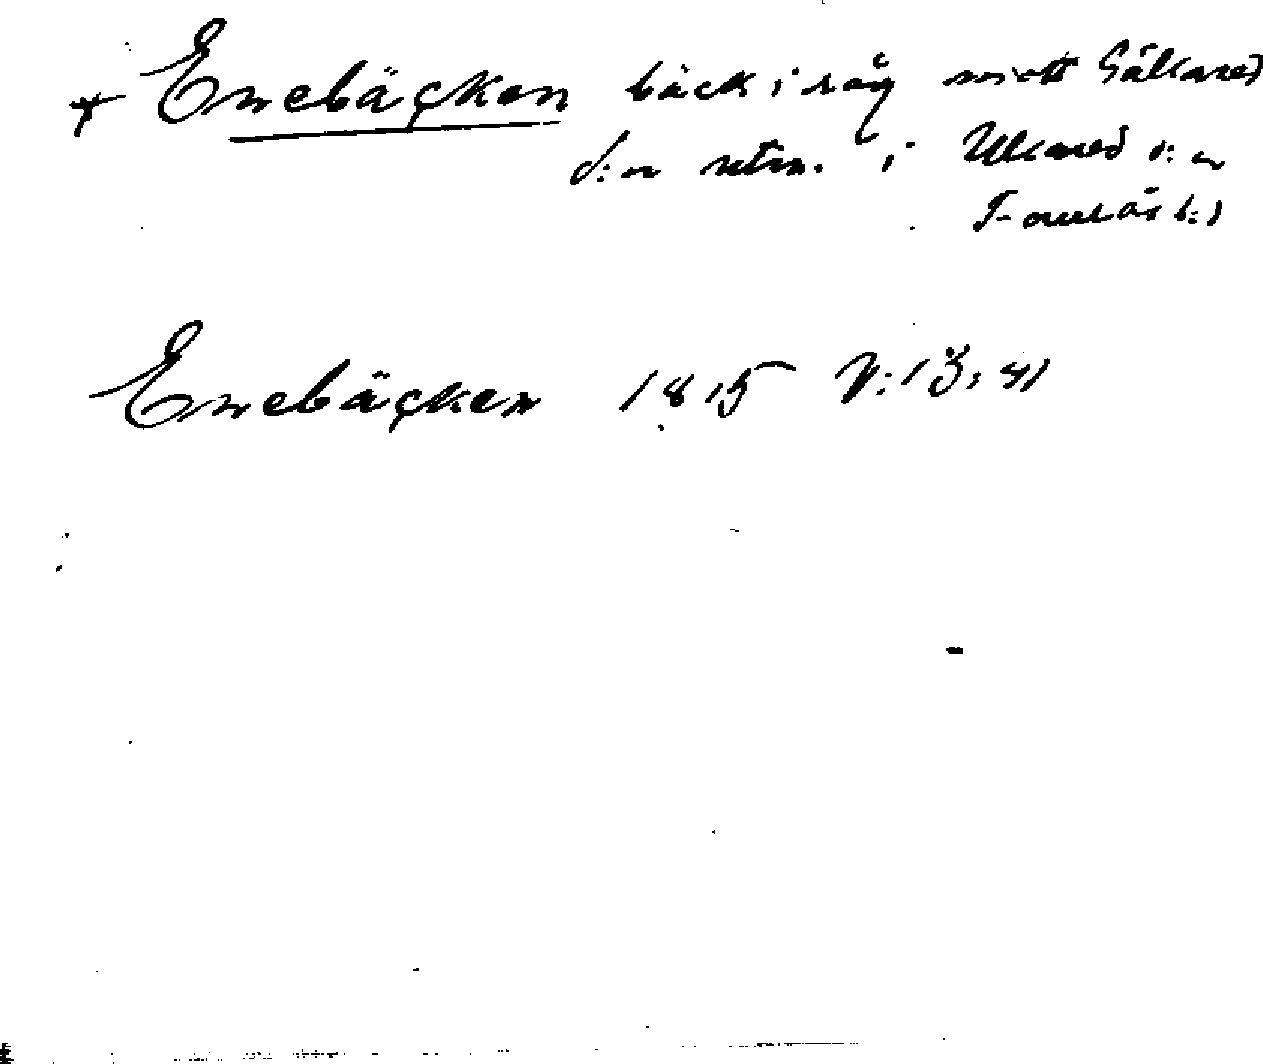 Enebäcken bäck i råg mott Gällared
s:n utm. i Ullared s:n
Faurås h:d
Enebäcken 1815 V: 13, 41